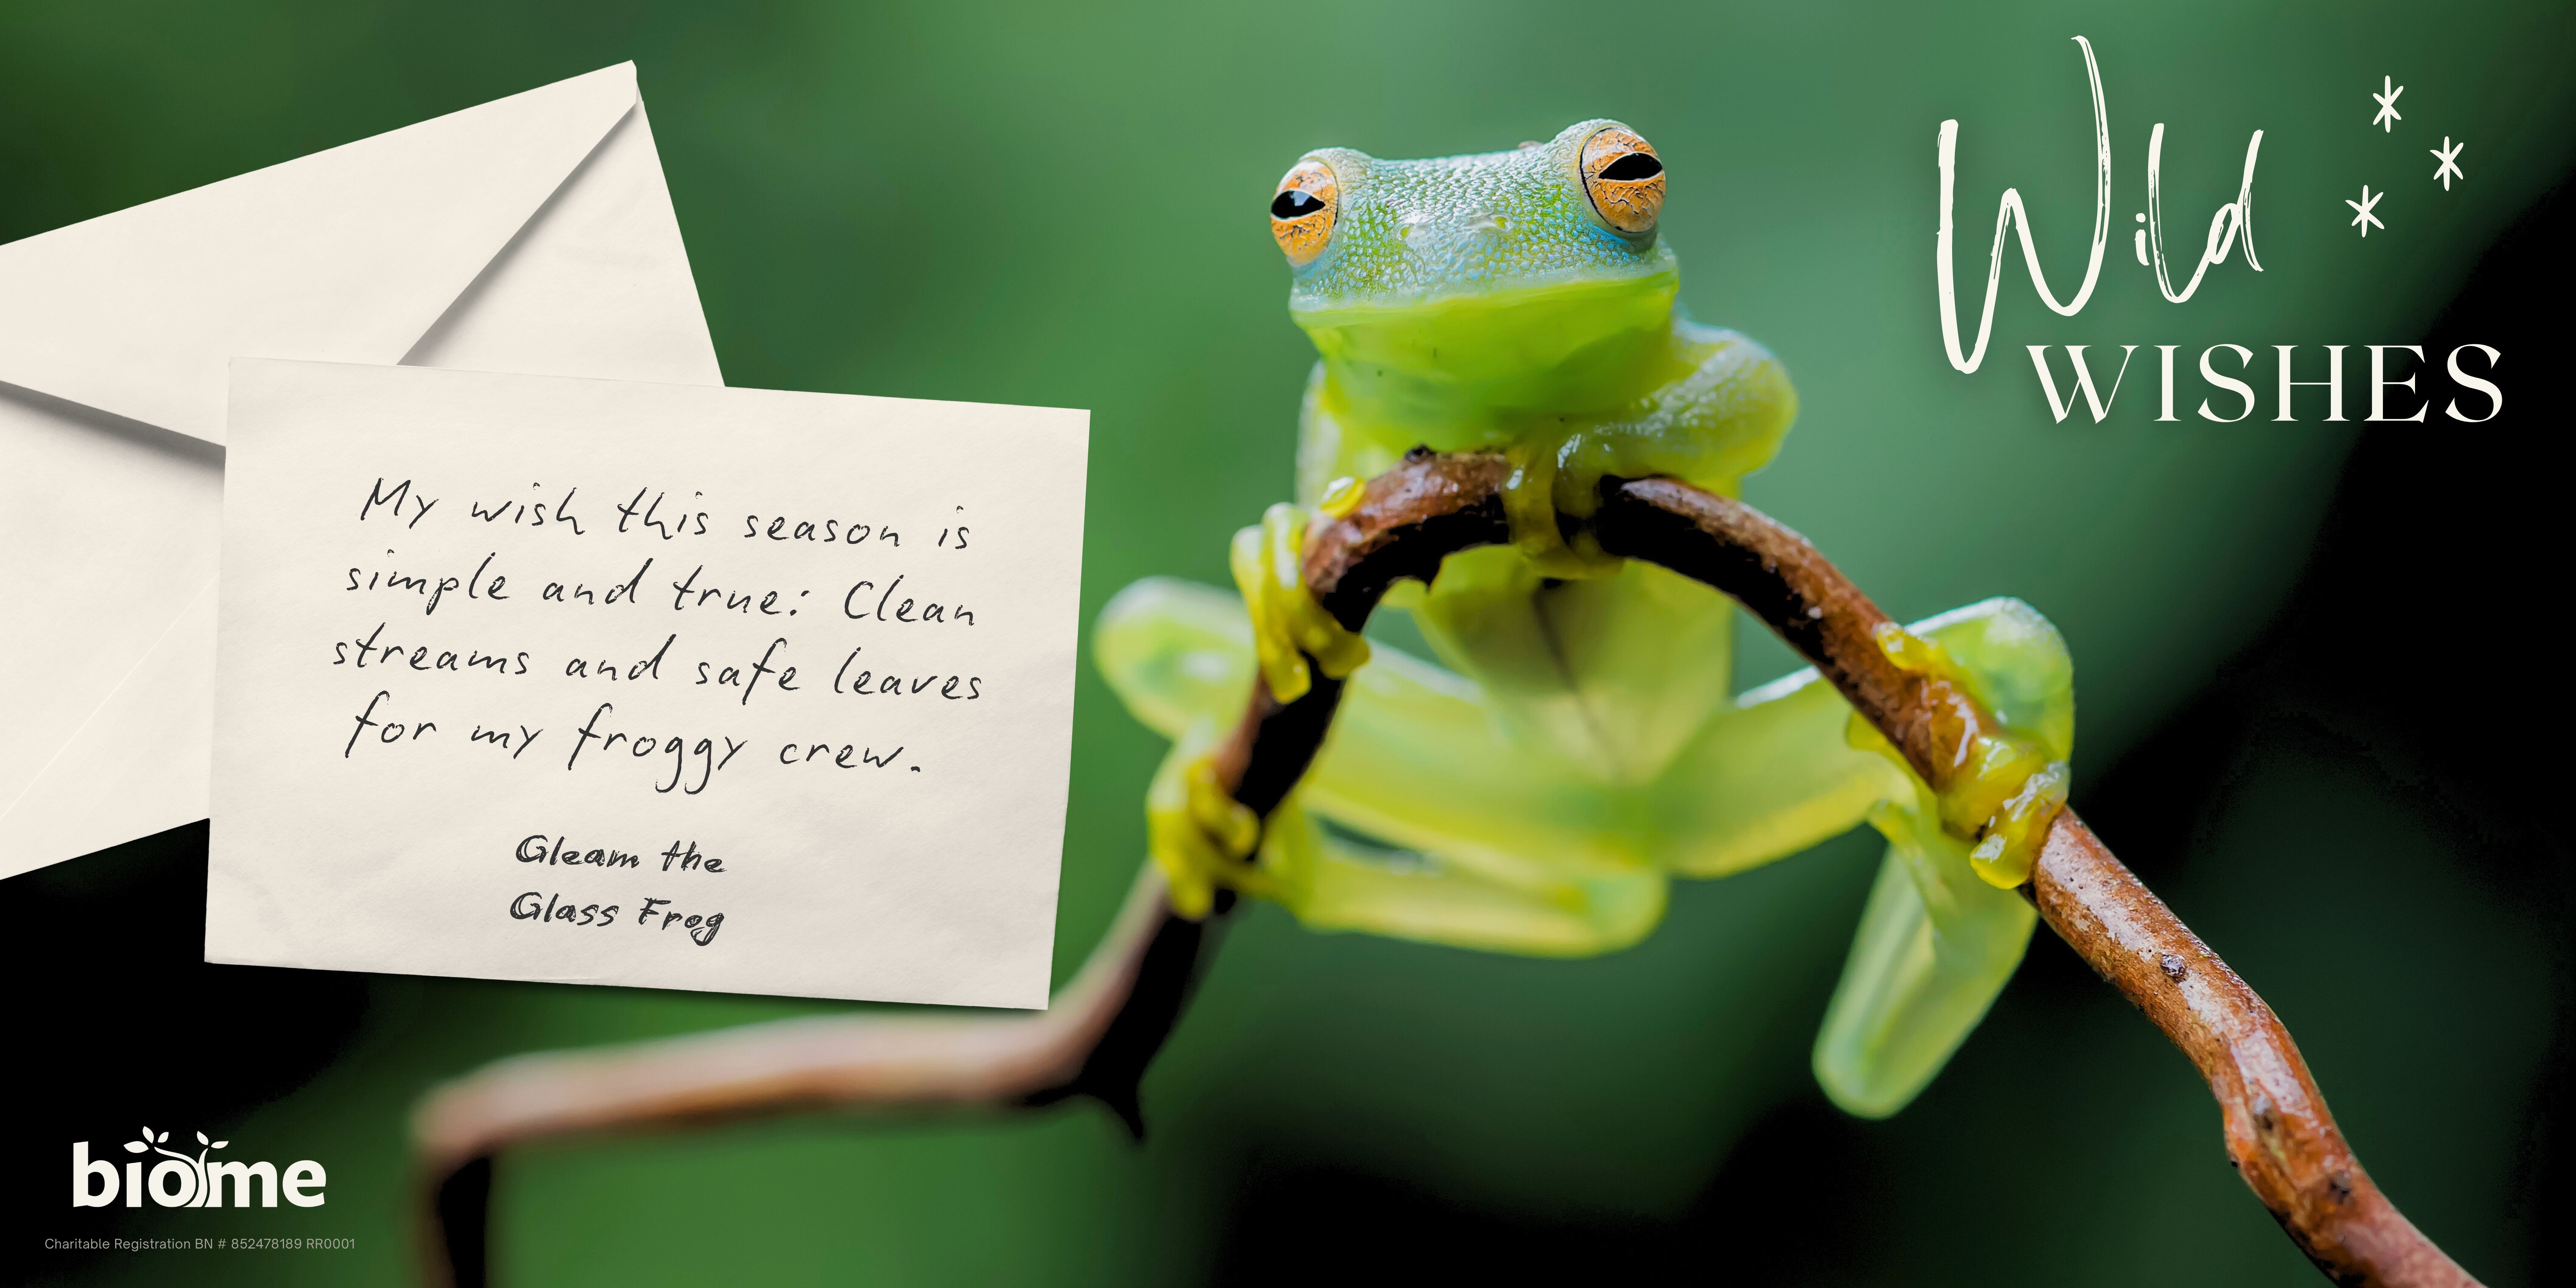 Wild
WISHES
My wish this season is
simple and true: Clean
streams and safe leaves
for my froggy crew.
Gleam the
Glass Frog
biome
Charitable Registration BN # 852478189 RR0001